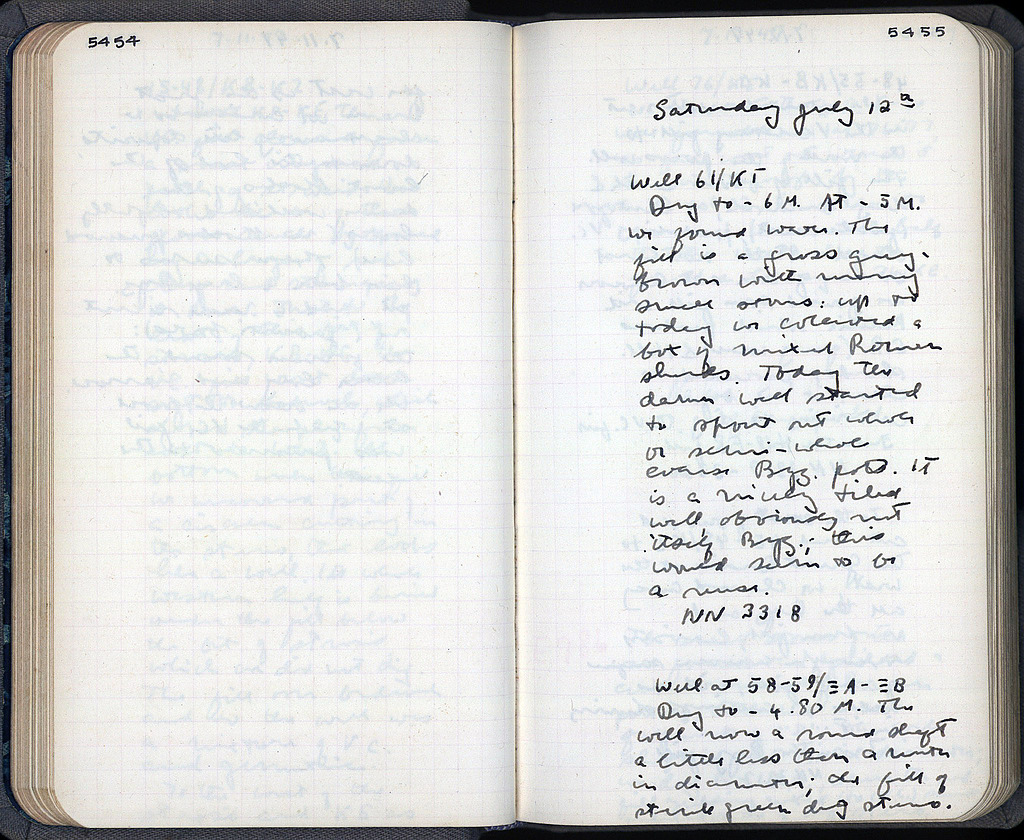 5454
5455
Saturday July 12ᵃ
Well 61/ΚΓ
Dug to - 6 M. At - 5 M.
we found water. The
fill is a gross grey-
brown with many
small stones: up to
today we collected a
box of mixed Roman
sherds. Today the
damn well started
to spout out whole
or semi-whole
coarse Byz. pots. It
is a nicely tiled
well, obviously not
itself Byz.; this
would seem to be
a reuse.
NN 3318
Well at 58-59/ΞΑ-ΞΒ
Dug to - 4.80 M. The
well now a round shaft
a little less than a meter
in diameter; the fill of
sterile green dug stones.